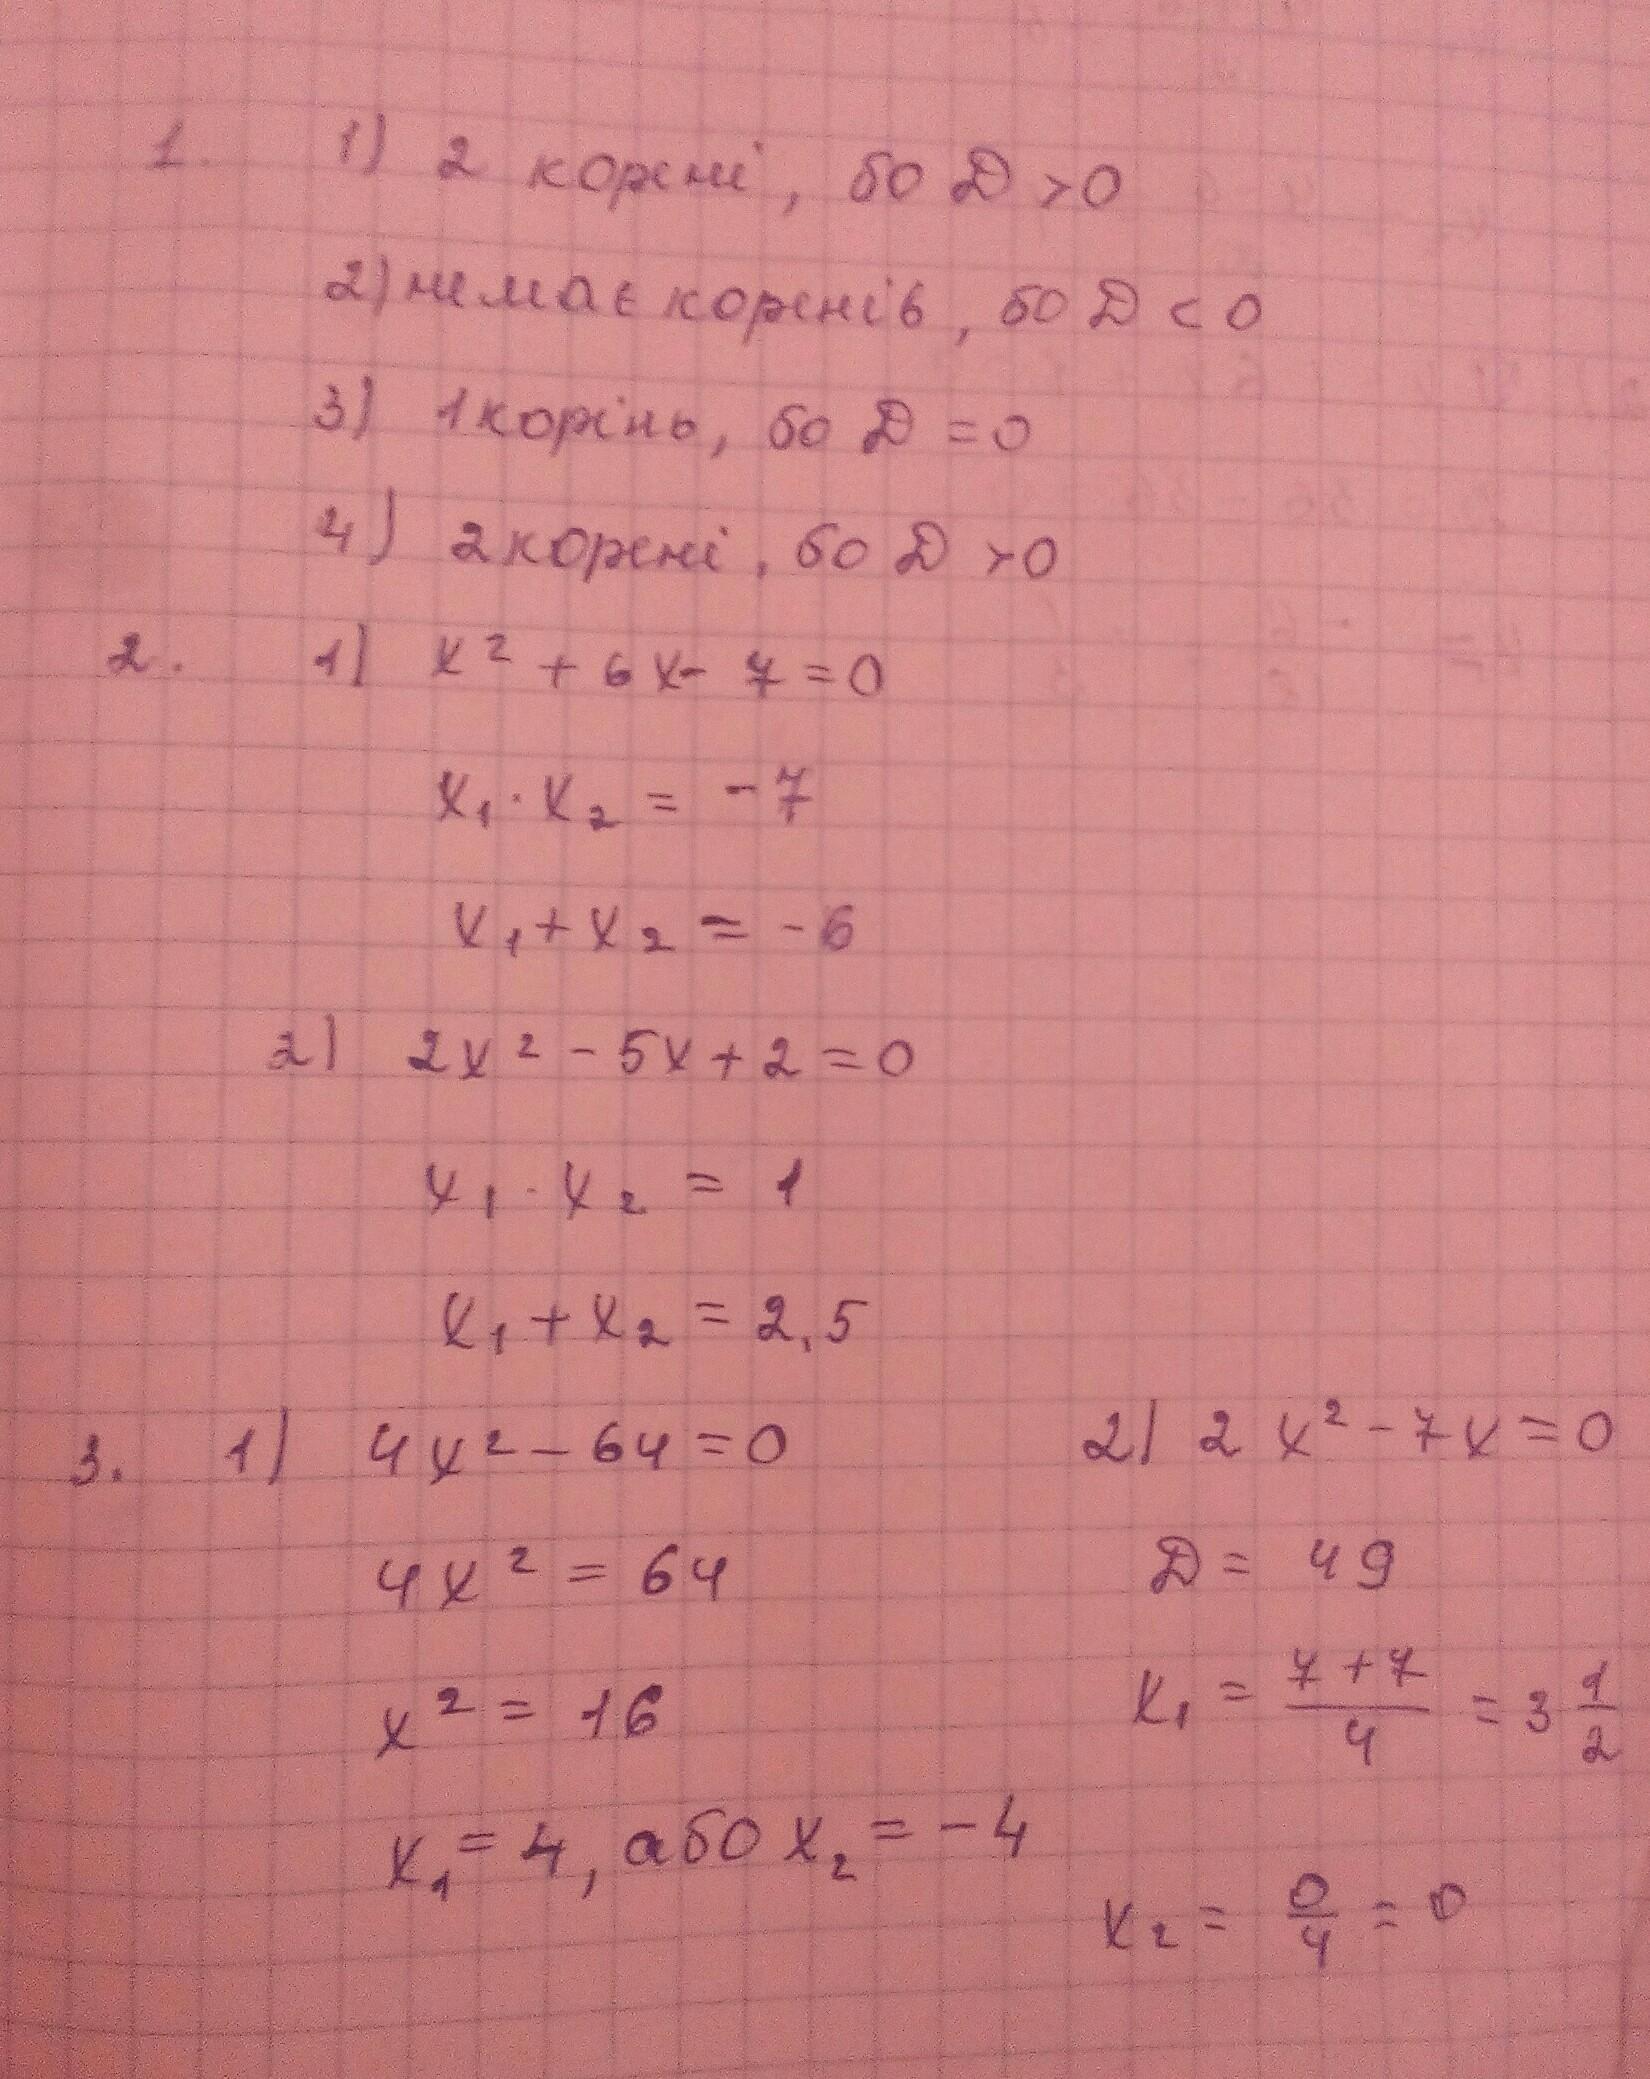 1. 1) 2 корені, бо D > 0
2) немає коренів, бо D < 0
3) 1 корінь, бо D = 0
4) 2 корені, бо D > 0
2. 1) x² + 6x - 7 = 0
x₁ · x₂ = -7
x₁ + x₂ = -6
2) 2x² - 5x + 2 = 0
x₁ · x₂ = 1
x₁ + x₂ = 2,5
3. 1) 4x² - 64 = 0
4x² = 64
x² = 16
x₁ = 4, або x₂ = -4
2) 2x² - 7x = 0
D = 49
x₁ = (7+7)/4 = 3 1/2
x₂ = 0/4 = 0